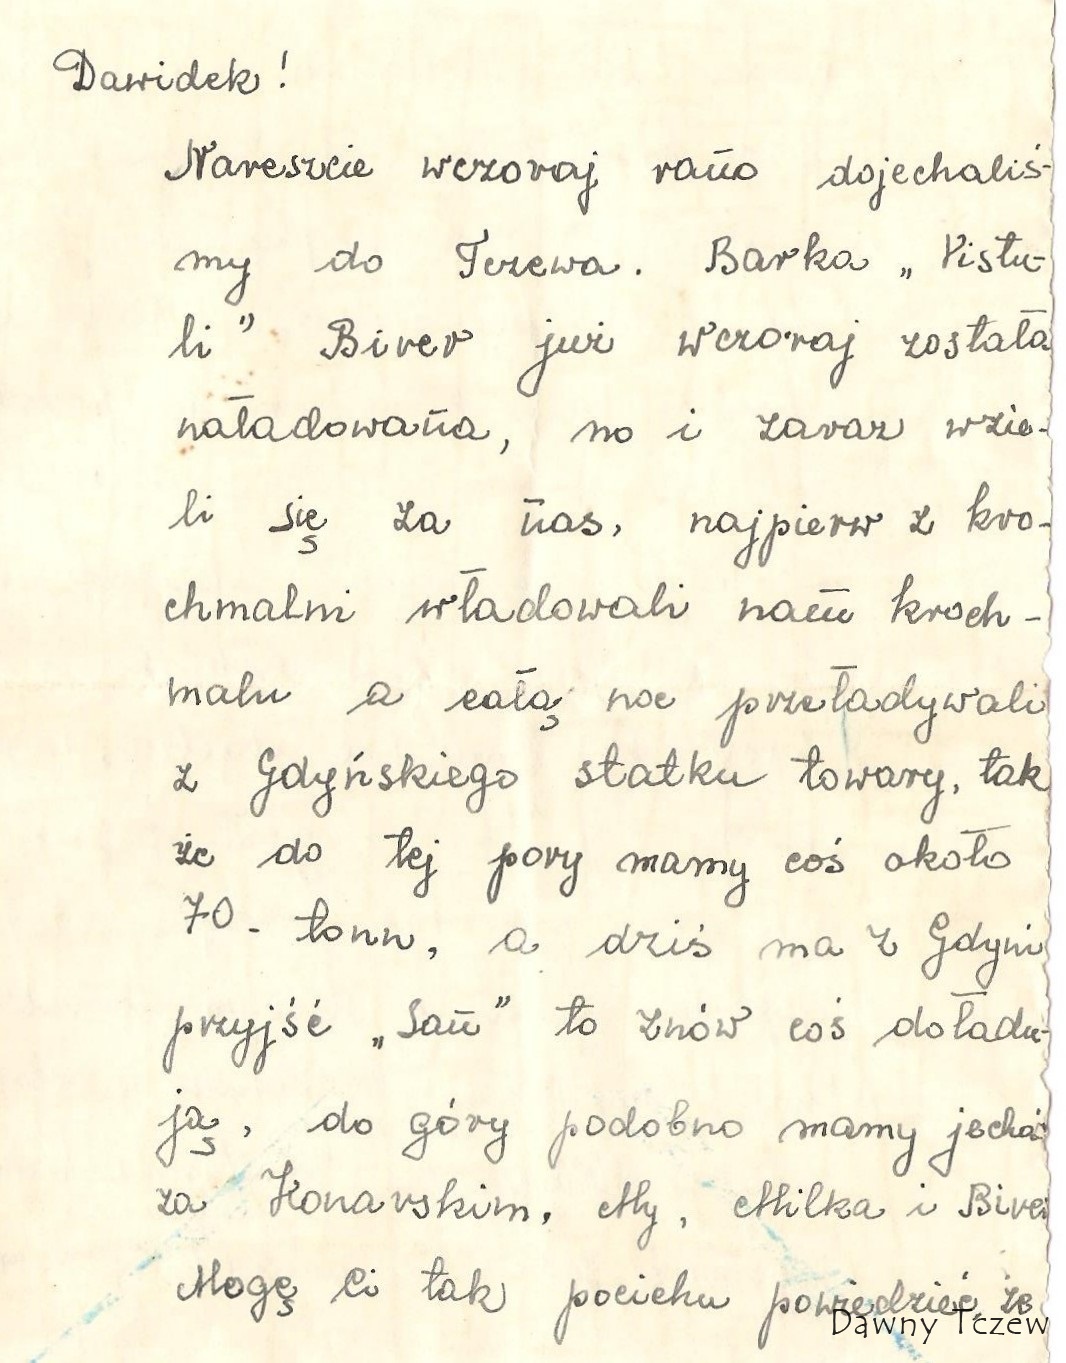 Dawidek!
Nareszcie wczoraj rano dojechaliś-
my do Tczewa. Barka „Vistu-
li” Birer już wczoraj została
naładowana, no i zaraz wzie-
li się za nas, najpierw z kro-
chmalni władowali nam kroch-
malu a całą noc przeładywali
z Gdyńskiego statku towary, tak
że do tej pory mamy coś około
70- tonn, a dziś ma z Gdyni
przyjść „San” to znów coś doładu-
ją, do góry podobno mamy jechać
za Konarskim. My, Milka i Birer
Mogę Ci tak pocichu powiedzieć, że
Dawny Tczew